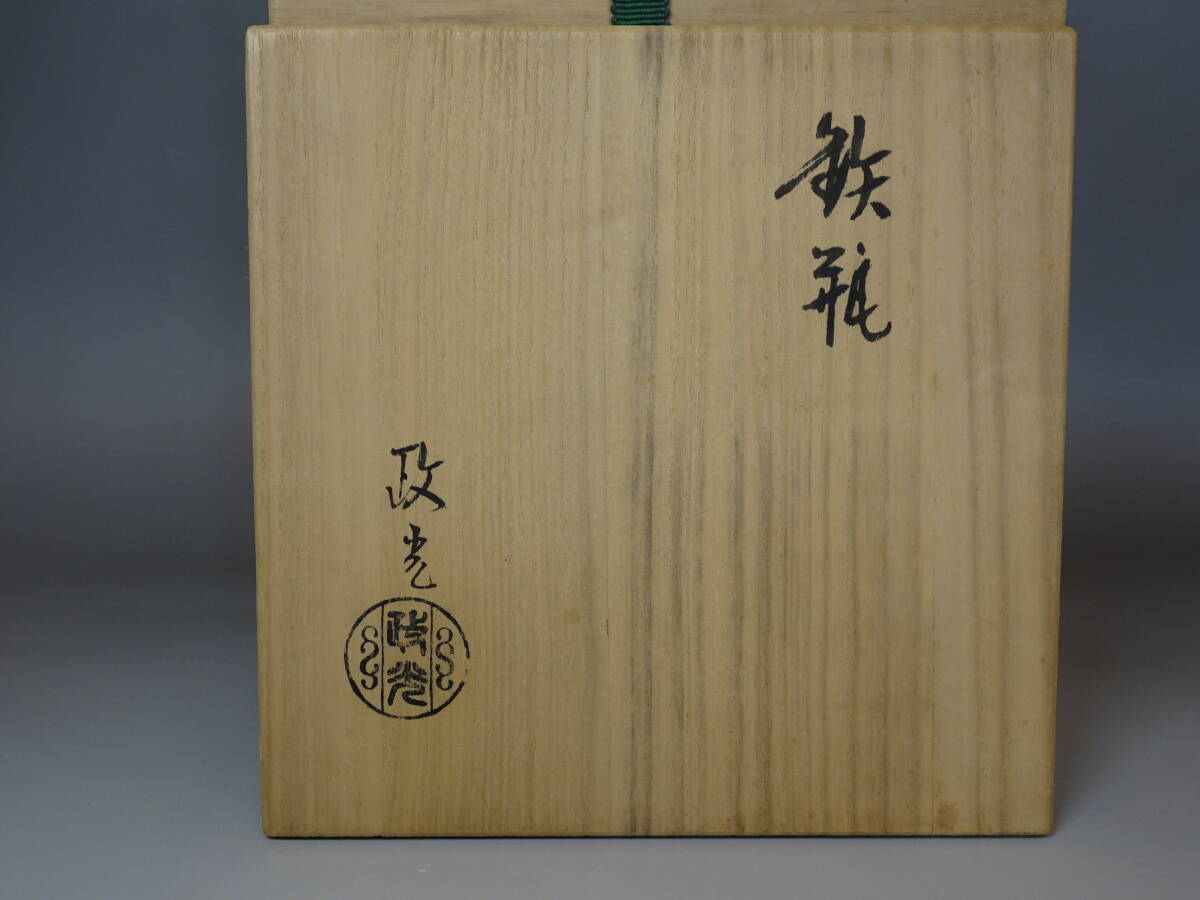 鉄瓶
政光
政光